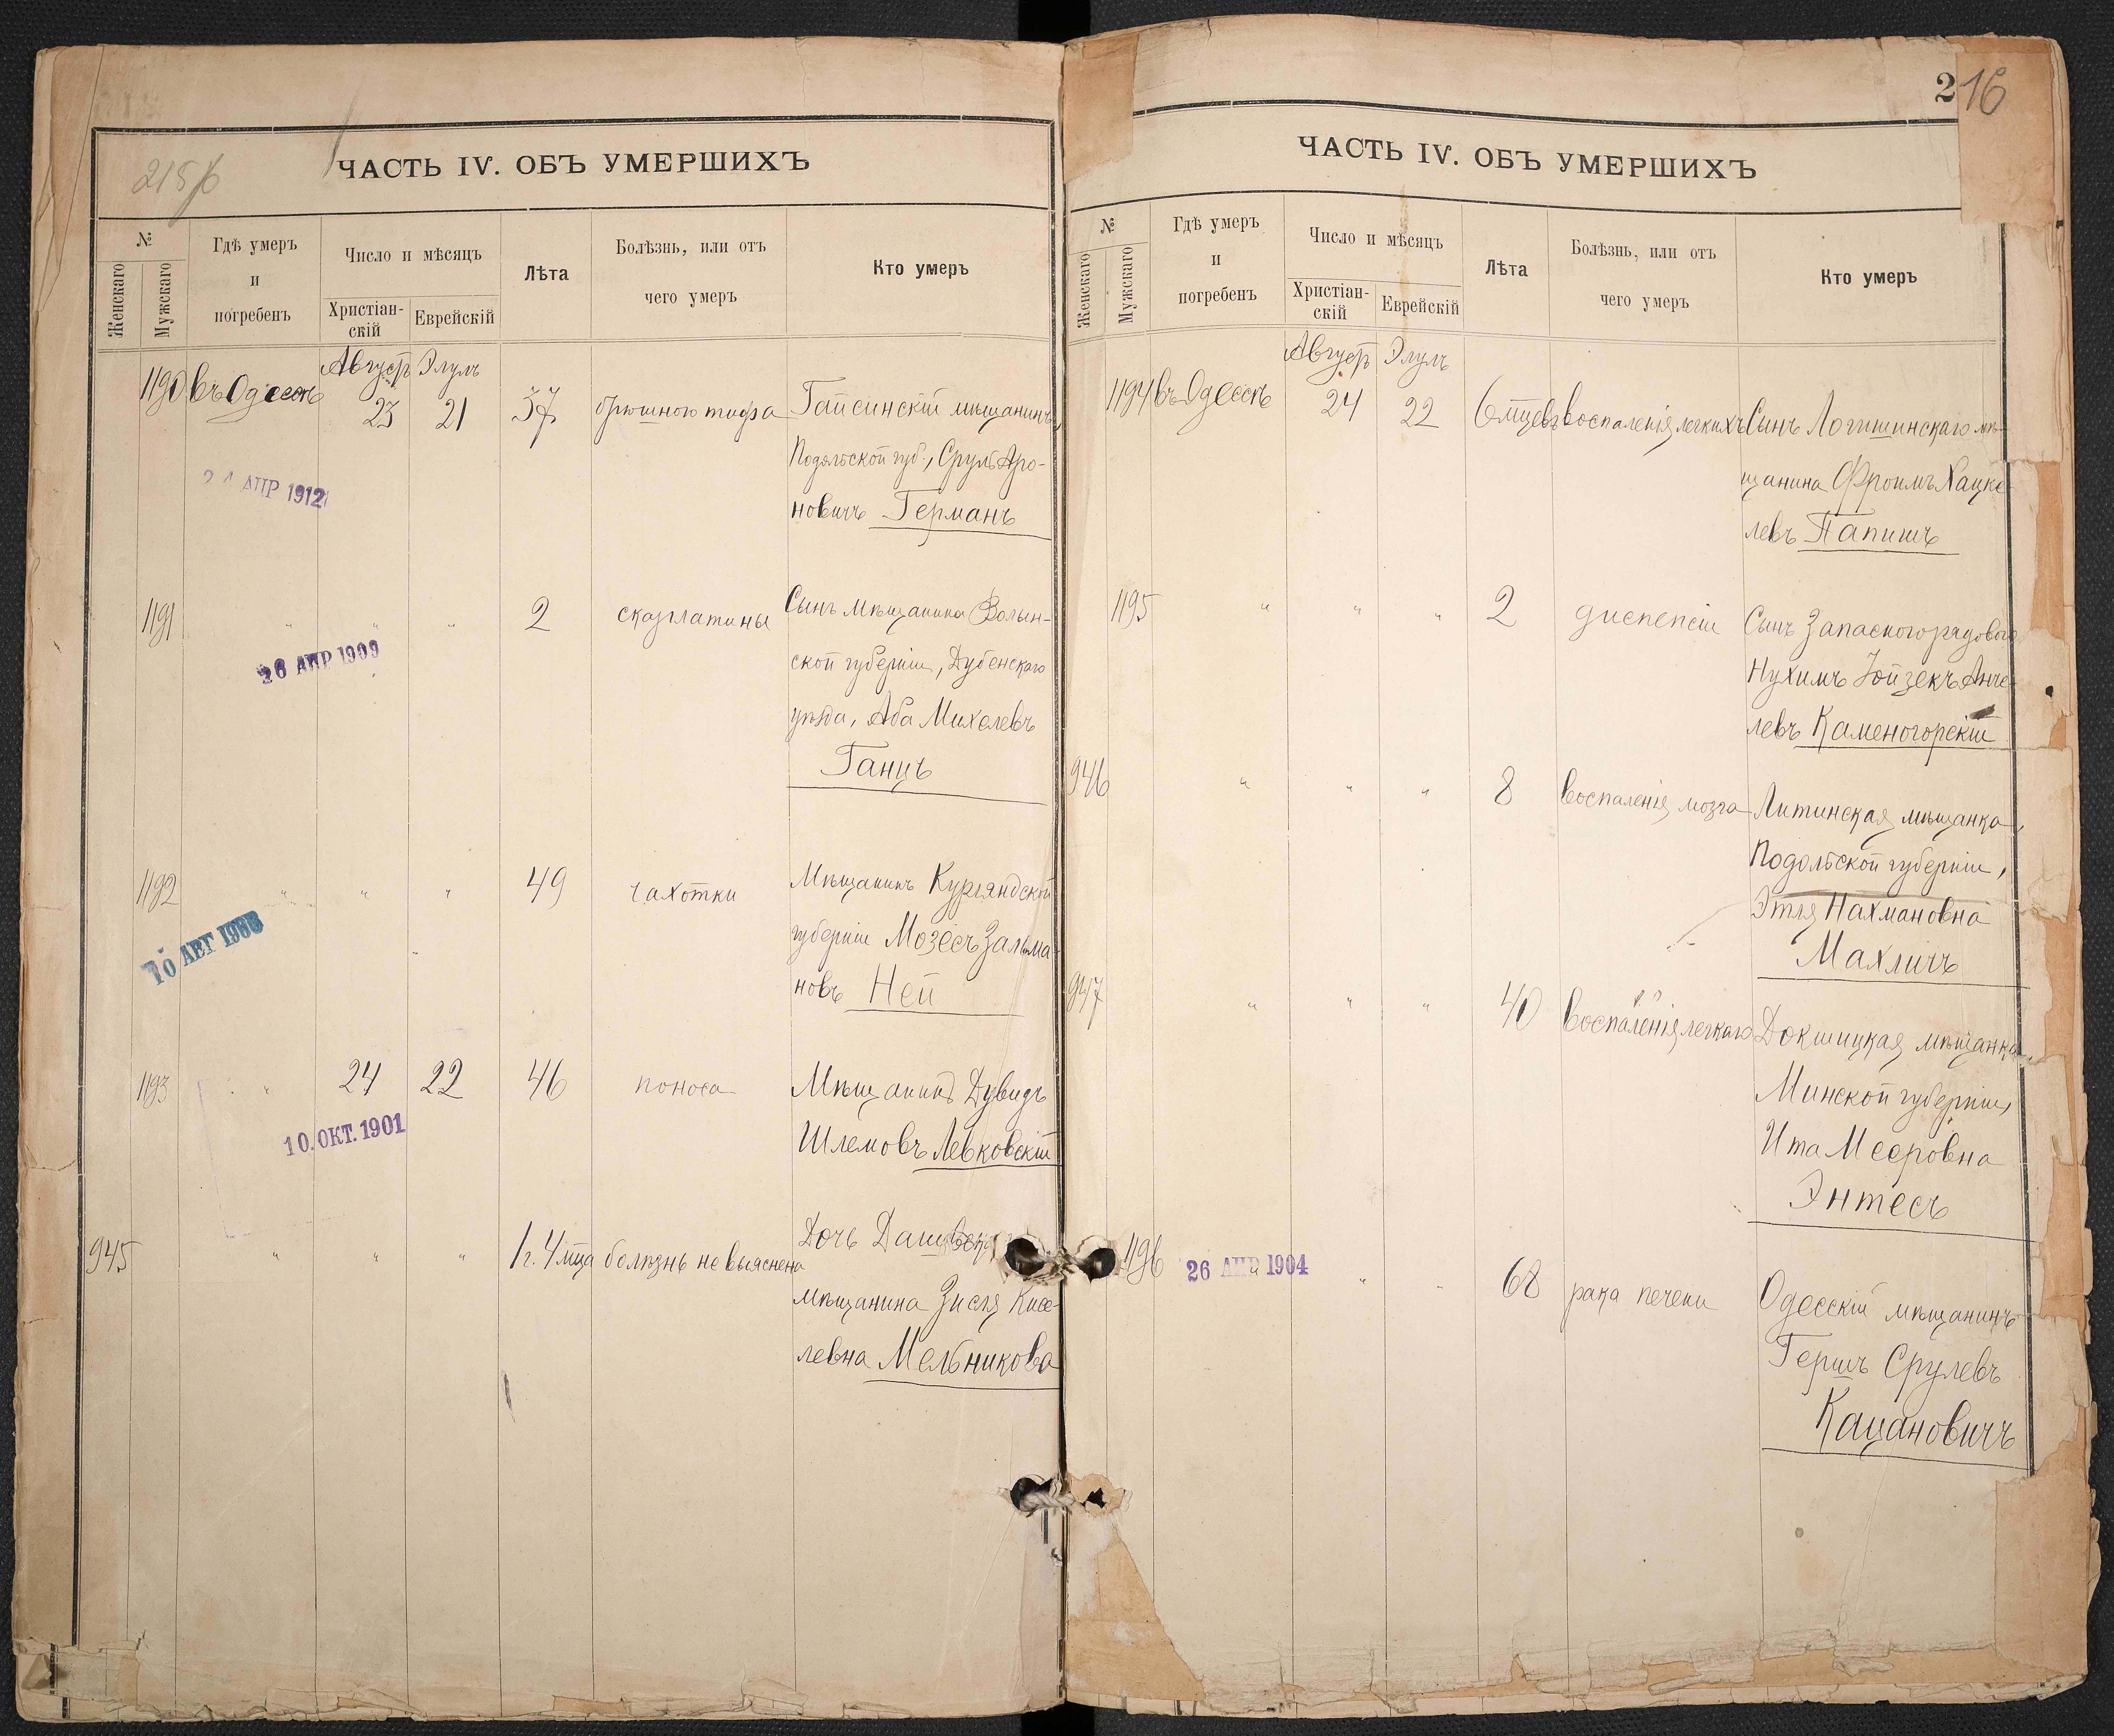 215об
ЧАСТЬ IV. ОБЪ УМЕРШИХЪ
№
Женскаго
Мужскаго
Гдѣ умеръ
и
погребенъ
Число и мѣсяцъ
Христіан-
скій
Еврейскій
Лѣта
Болѣзнь, или отъ
чего умеръ
Кто умеръ
Августъ Элулъ
1190 въ Одессѣ 23 21 37 брюшного тифа Гайсинскій мѣщанинъ,
Подольской губ., Сруль Аро-
новичъ Германъ
24 АПР 1912
1191 " " " 2 скарлатины Сынъ мѣщанина Волын-
ской губерніи, Дубенскаго
уѣзда, Аба Михелевъ
Ганцъ
26 АПР 1909
1192 " " " 49 чахотки Мѣщанинъ Курляндской
губерніи Мозесъ Зальма-
новъ Ней
10 АВГ
1193 " 24 22 46 поноса Мѣщанинъ Дувидъ
Шлемовъ Левковскій
10.ОКТ.1901
945 " " " 1 г. 4 мѣца болѣзнь не выяснена Дочь
мѣщанина Зисля Кисе-
левна Мельникова
216
ЧАСТЬ IV. ОБЪ УМЕРШИХЪ
№
Женскаго
Мужскаго
Гдѣ умеръ
и
погребенъ
Число и мѣсяцъ
Христіан-
скій
Еврейскій
Лѣта
Болѣзнь, или отъ
чего умеръ
Кто умеръ
Августъ Элулъ
1194 въ Одессѣ 24 22 6 мѣцевъ воспаленія легкихъ Сынъ Логишинскаго мѣ-
щанина Фроимъ Хацке-
левъ Папишъ
1195 " " " 2 диспепсіи Сынъ Запасного рядового
Нухимъ Іойзекъ Анче-
левъ Каменогорскій
946 " " " 8 воспаленія мозга Литинская мѣщанка,
Подольской губерніи,
Этля Нахмановна
Махличъ
947 " " " 40 воспаленія легкаго Докшицкая мѣщанка,
Минской губерніи,
Ита Мееровна
Энтесъ
1196 " " " 68 рака печени Одесскій мѣщанинъ
Гершъ Срулевъ
Кацановичъ
26 АПР 1904